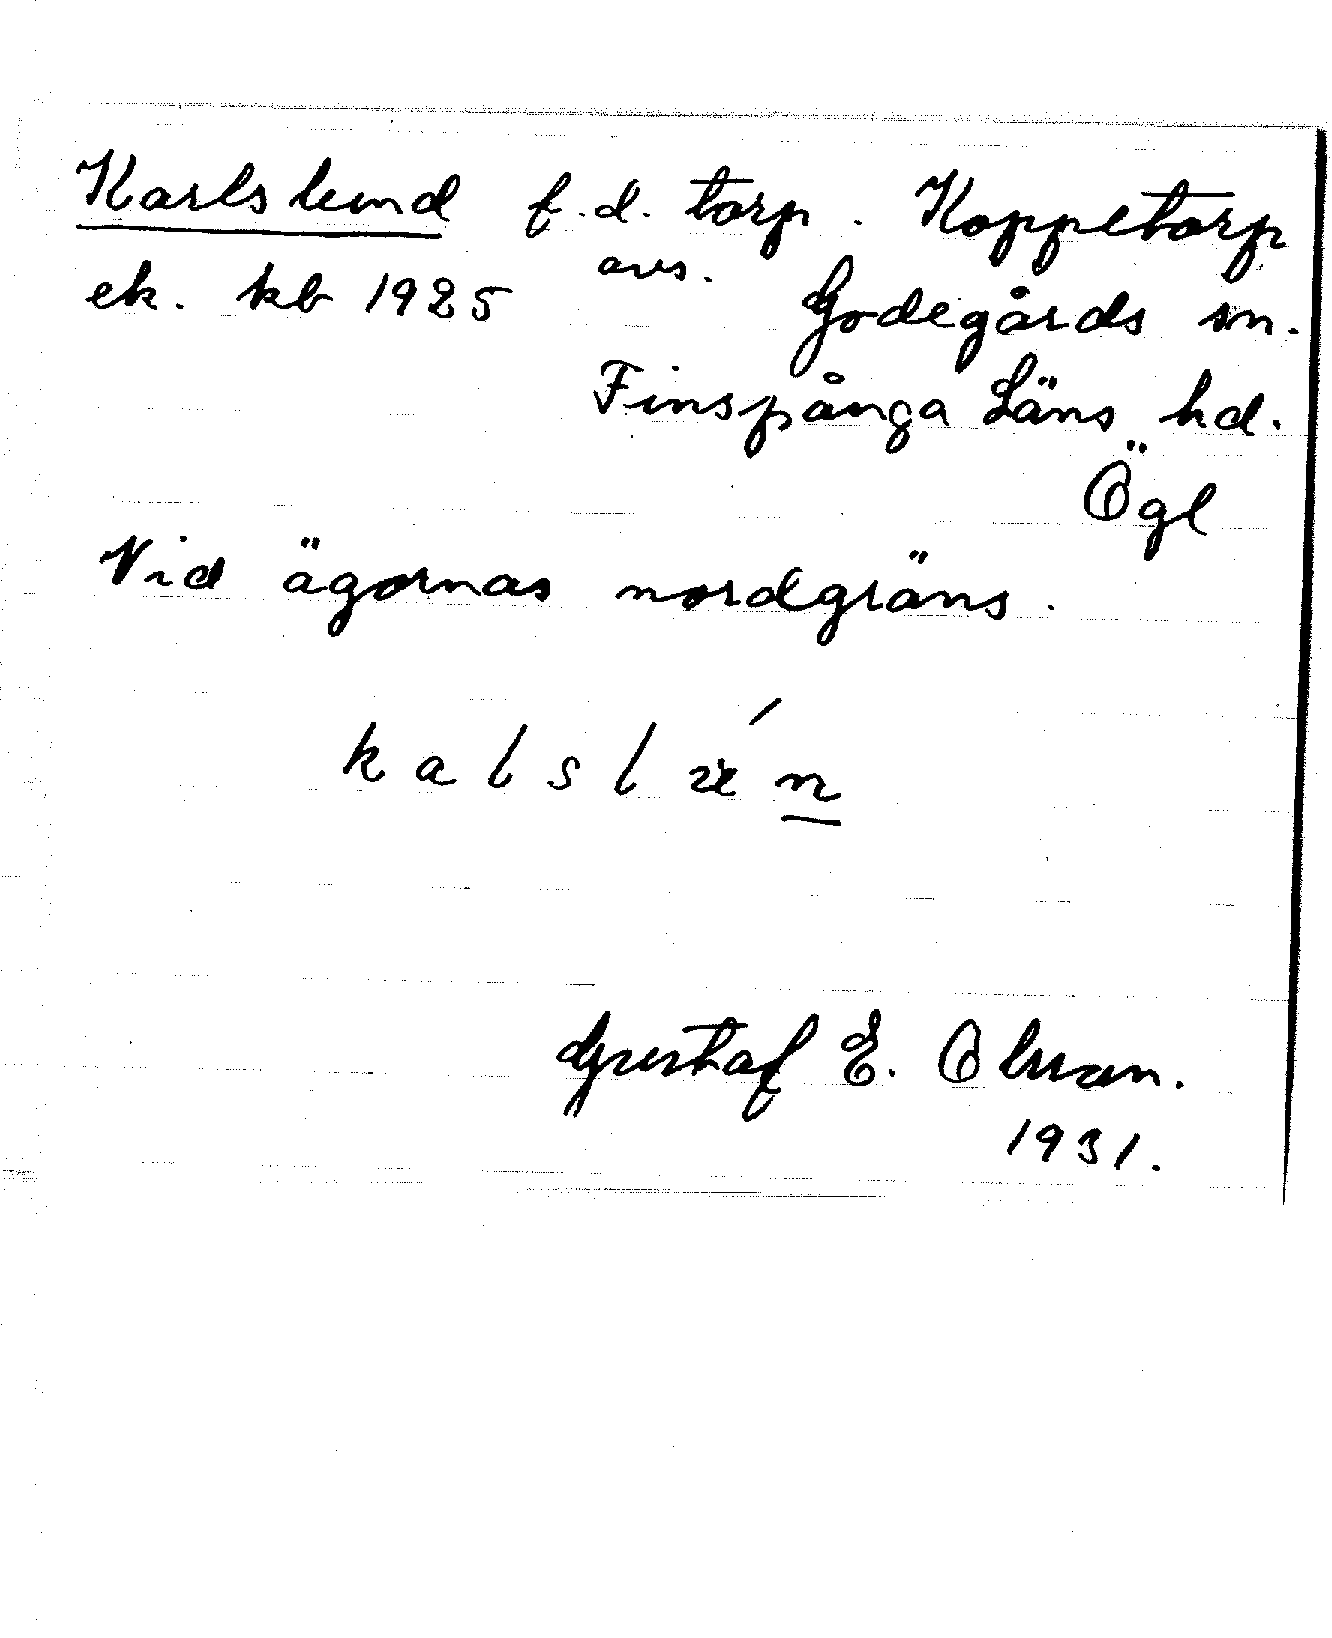 Karlslund f.d. torp. Koppetorp
avs.
ek. kb 1925 Godegårds sn.
Finspånga Läns hd.
Ögl
Vid ägornas nordgräns.
Gustaf E. Olsson.
1931.